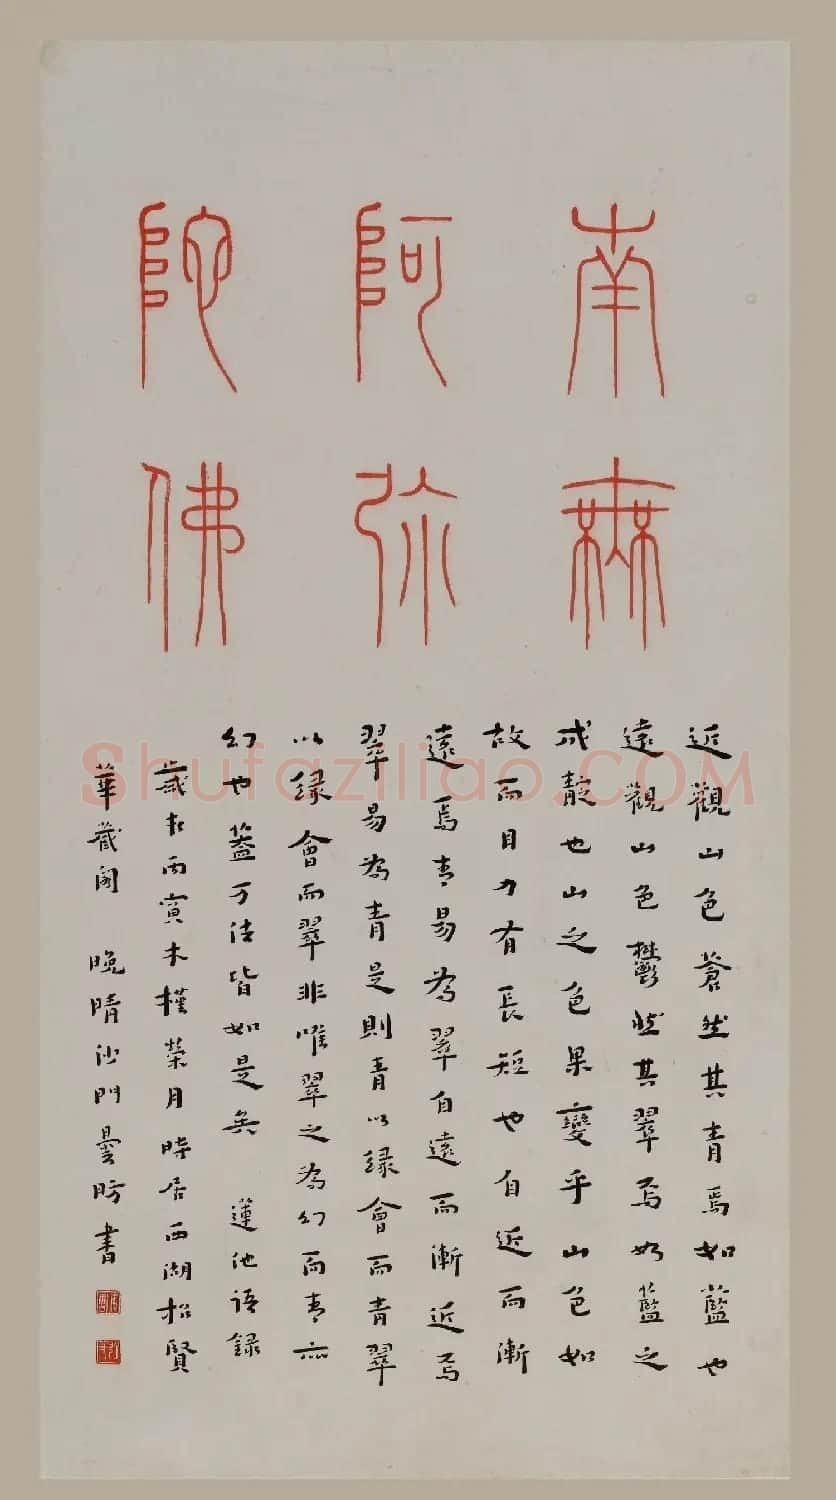 南無
阿弥
陀佛
近觀山色蒼然其青焉如藍也
遠觀山色鬱然其翠焉如藍之
成靛也山之色果變乎山色如
故而目力有長短也自近而漸
遠焉青易為翠自遠而漸近焉
翠易為青是則青以緣會而青翠
以緣會而翠非唯翠之為幻而青亦
幻也蓋万法皆如是矣 蓮池語錄
歲在丙寅木槿榮月時居西湖招賢
華藏閣 晚晴沙門曇昉書
Shufaziliao.COM